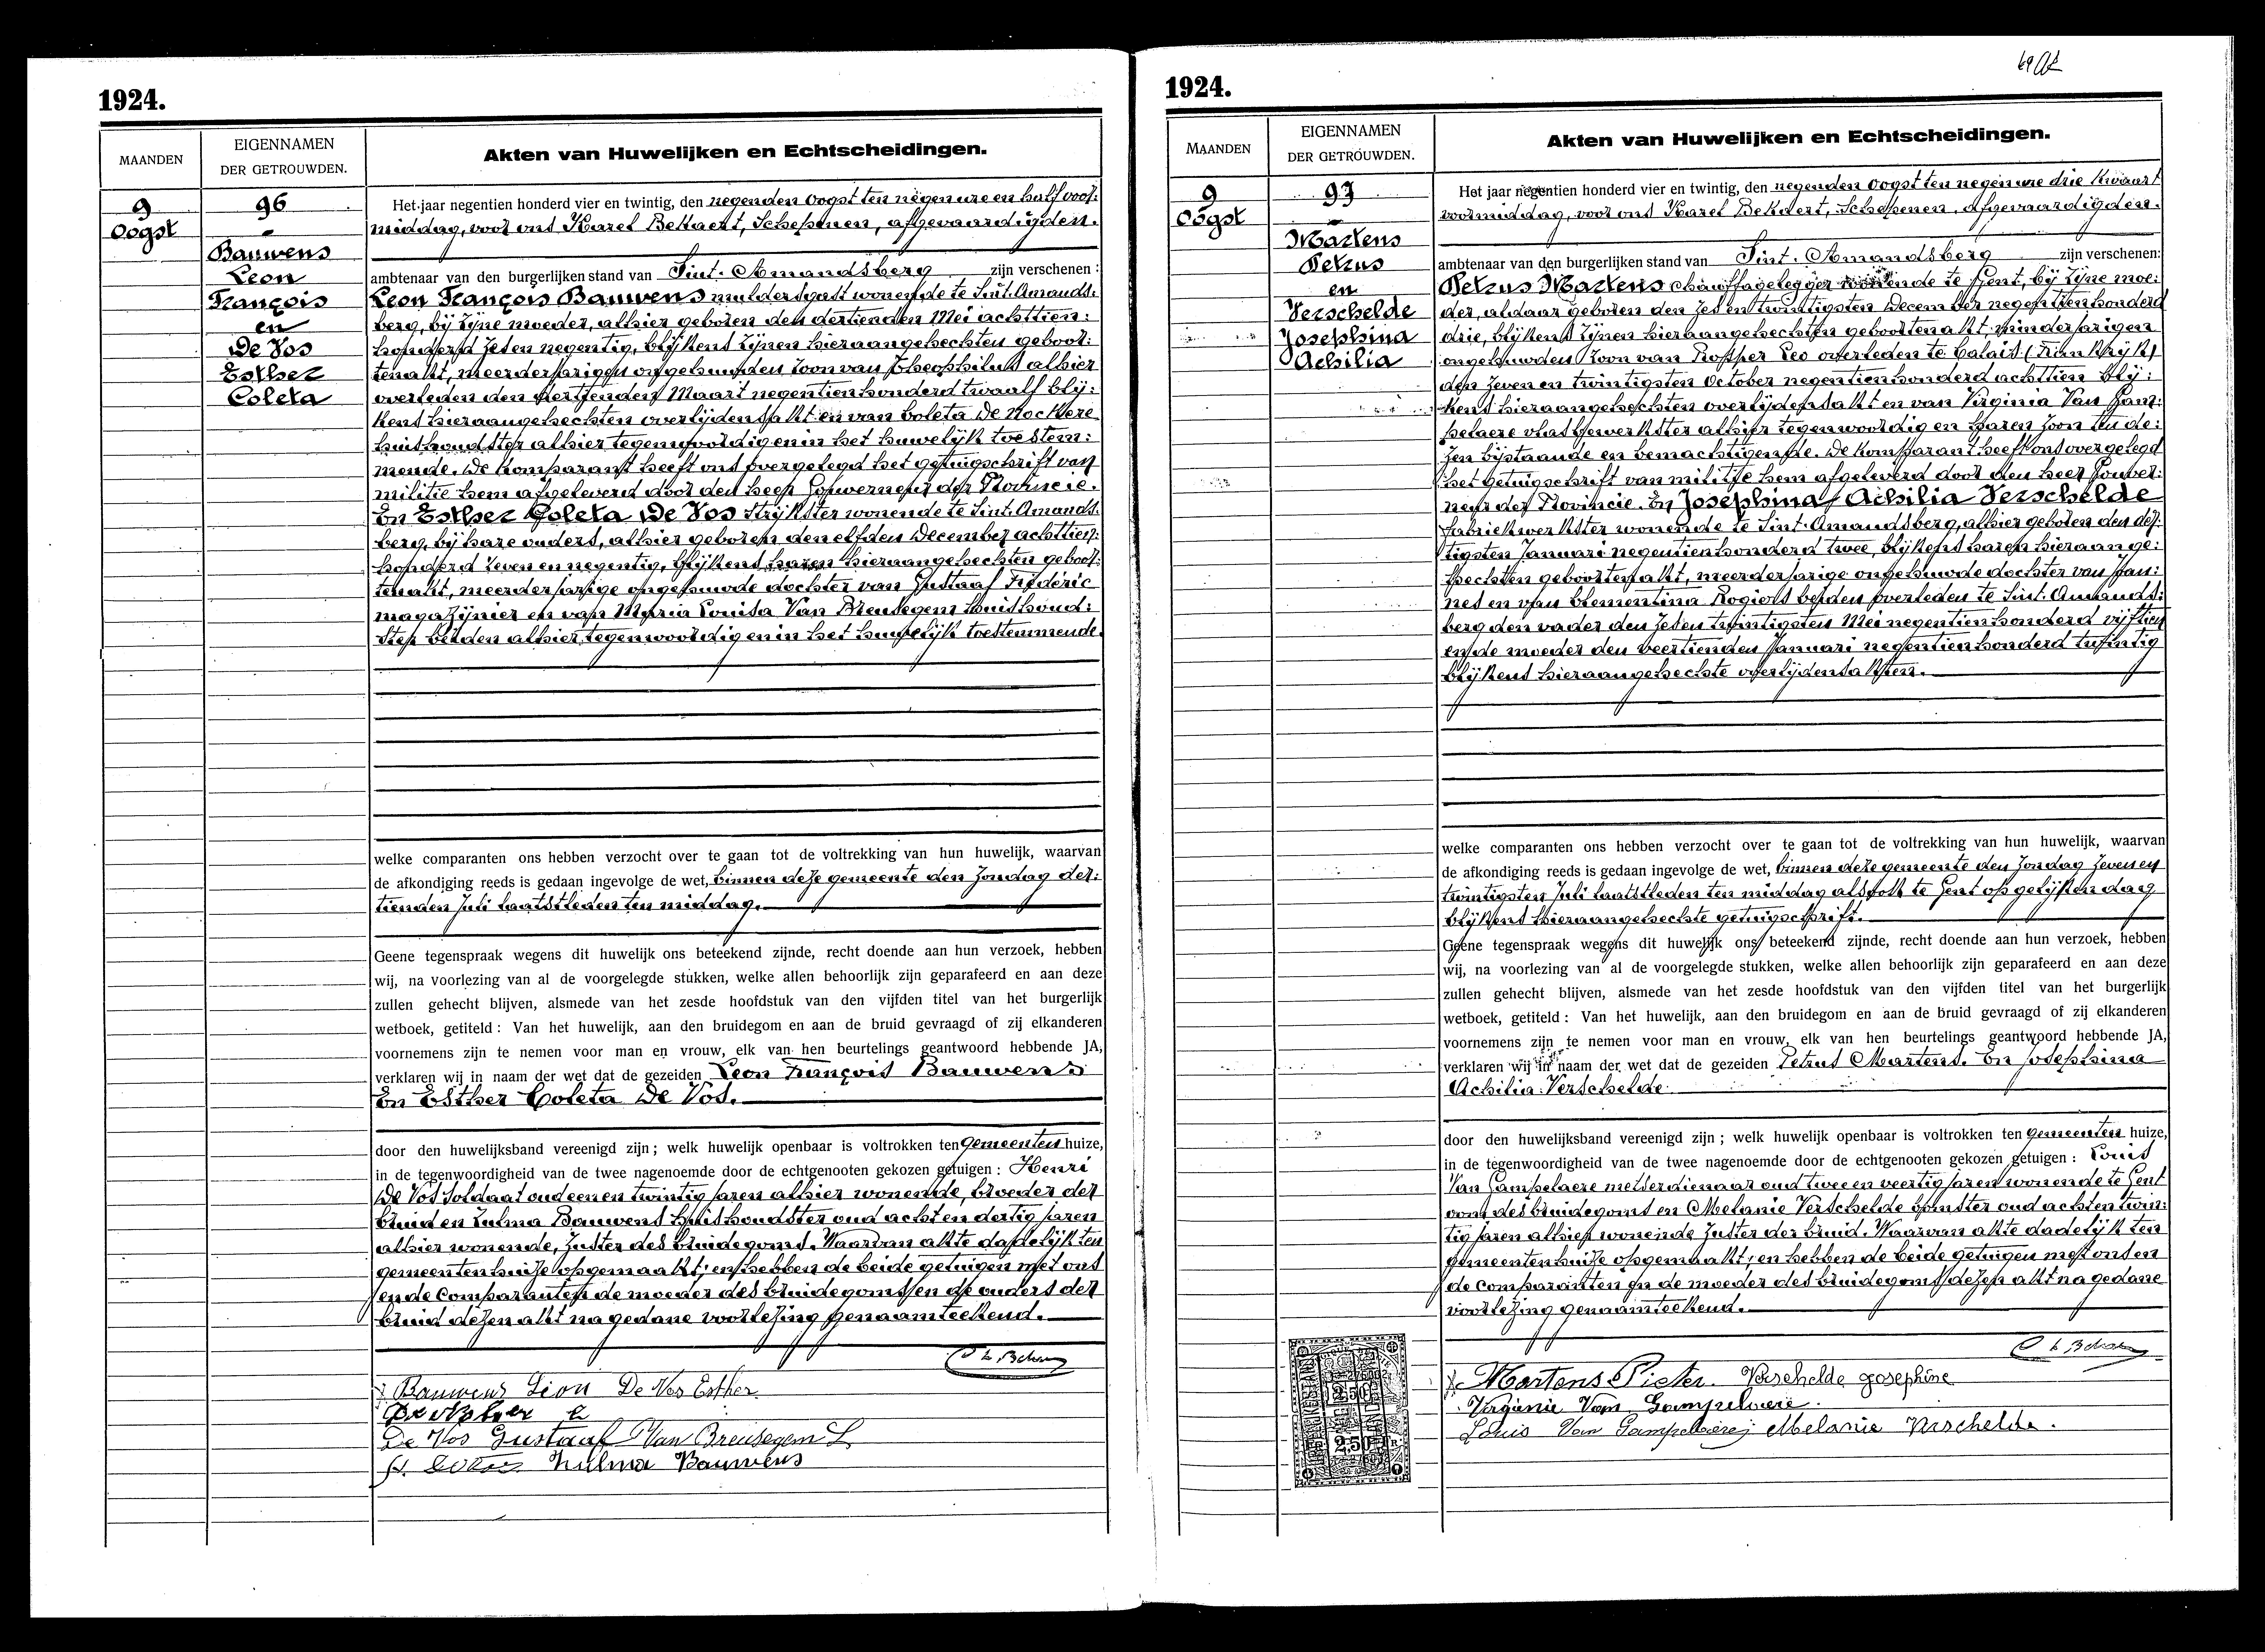 1924.
MAANDEN
EIGENNAMEN
DER GETROUWDEN.
Akten van Huwelijken en Echtscheidingen.
9
Oogst
96
Bauwens
Leon
François
en
De Vos
Esther
Coleta
Het jaar negentien honderd vier en twintig, den negenden Oogst ten negen ure en half voor:
middag, voor ons Karel Bekaert, Schepenen, afgevaardigden.
ambtenaar van den burgerlijken stand van Sint. Amandsberg zijn verschenen:
Leon François Bauwens muldersgast wonende te Sint. Amands:
berg, bij zijne moeder, alhier geboren den dertienden Mei achttien:
honderd zes en negentig, blijkens zijnen hieraangehechten geboor:
tenakt, meerderjarigen ongehuwden zoon van Theophilus alhier
overleden den Maart negentienhonderd twaalf blij:
kens hieraangehechten overlijdensakt en van Coleta De Nockere
huishoudster alhier tegenwoordig en in het huwelijk toestem:
mende. De Komparant heeft ons overgelegd het getuigschrift van
militie hem afgeleverd door den heer Gouverneur der Provincie.
En Esther Coleta De Vos strijkster wonende te Sint. Amands:
berg, bij hare ouders, alhier geboren den elfden December achttien:
honderd zeven en negentig, blijkens haren hieraangehechten geboor:
tenakt, meerderjarige ongehuwde dochter van Gustaaf Frederic
magazijnier en van Maria Louisa Van Breusegem huishoud:
ster beiden alhier tegenwoordig en in het huwelijk toestemmende.
welke comparanten ons hebben verzocht over te gaan tot de voltrekking van hun huwelijk, waarvan
de afkondiging reeds is gedaan ingevolge de wet, binnen deze gemeente den Zondag der:
tienden Juli laatstleden ten middag.
Geene tegenspraak wegens dit huwelijk ons beteekend zijnde, recht doende aan hun verzoek, hebben
wij, na voorlezing van al de voorgelegde stukken, welke allen behoorlijk zijn geparafeerd en aan deze
zullen gehecht blijven, alsmede van het zesde hoofdstuk van den vijfden titel van het burgerlijk
wetboek, getiteld: Van het huwelijk, aan den bruidegom en aan de bruid gevraagd of zij elkanderen
voornemens zijn te nemen voor man en vrouw, elk van hen beurtelings geantwoord hebbende JA,
verklaren wij in naam der wet dat de gezeiden Leon François Bauwens
En Esther Coleta De Vos.
door den huwelijksband vereenigd zijn; welk huwelijk openbaar is voltrokken ten Gemeenten huize,
in de tegenwoordigheid van de twee nagenoemde door de echtgenooten gekozen getuigen: Henri
De Vos Soldaat oud een en twintig jaren alhier wonende, broeder der
bruid en Zulma Bauwens huishoudster oud acht en dertig jaren
alhier wonende, zuster des bruidegoms. Waarvan akte dadelijk ten
gemeentenhuize opgemaakt; en hebben de beide getuigen met ons
en de Comparanten de moeder des bruidegoms en de ouders der
bruid dezen akt na gedane voorlezing genaamteekend.
Bauwens Leon De Vos Esther
De Vos Gustaaf Van Breusegem L
Zulma Bauwens
1924.
MAANDEN
EIGENNAMEN
DER GETROUWDEN.
Akten van Huwelijken en Echtscheidingen.
9
Oogst
97
Martens
Petrus
en
Verschelde
Josephina
Achilia
Het jaar negentien honderd vier en twintig, den negenden Oogst ten negen ure drie kwaart
voormiddag, voor ons Karel Bekaert, Schepenen, afgevaardigden.
ambtenaar van den burgerlijken stand van Sint. Amandsberg zijn verschenen:
Petrus Martens chauffagelegger wonende te Gent, bij zijne moe:
der, aldaar geboren den zes en twintigsten December negentienhonderd
drie, blijkens zijnen hieraangehechten geboortenakt, minderjarigen
ongehuwden zoon van Prosper Leo overleden te Calais (Frankrijk)
den zeven en twintigsten October negentienhonderd achttien blij:
kens hieraangehechten overlijdensakt en van Virginia Van Gam:
pelaere vlasbewerkster alhier tegenwoordig en haren zoon tot de:
zen bijstaande en bemachtigende. De Komparant heeft ons overgelegd
het getuigschrift van militie hem afgeleverd door den heer Gouver:
neur der Provincie. En Josephina Achilia Verschelde
fabriekwerkster wonende te Sint. Amandsberg, alhier geboren den der:
tigsten Januari negentienhonderd twee, blijkens haren hieraange:
hechten geboortenakt, meerderjarige ongehuwde dochter van Jan:
nes en van Clementina Rogiers beiden overleden te Sint. Amands:
berg den vader den zes en twintigsten Mei negentienhonderd vijftien
en de moeder den veertienden Januari negentienhonderd twintig
blijkens hieraangehechte overlijdensakten.
welke comparanten ons hebben verzocht over te gaan tot de voltrekking van hun huwelijk, waarvan
de afkondiging reeds is gedaan ingevolge de wet, binnen deze gemeente den Zondag zeven en
twintigsten Juli laatstleden ten middag alsook te Gent op gelijken dag
blijkens hieraangehechte getuigschrift.
Geene tegenspraak wegens dit huwelijk ons beteekend zijnde, recht doende aan hun verzoek, hebben
wij, na voorlezing van al de voorgelegde stukken, welke allen behoorlijk zijn geparafeerd en aan deze
zullen gehecht blijven, alsmede van het zesde hoofdstuk van den vijfden titel van het burgerlijk
wetboek, getiteld: Van het huwelijk, aan den bruidegom en aan de bruid gevraagd of zij elkanderen
voornemens zijn te nemen voor man en vrouw, elk van hen beurtelings geantwoord hebbende JA,
verklaren wij in naam der wet dat de gezeiden Petrus Martens. En Josephina
Achilia Verschelde.
door den huwelijksband vereenigd zijn; welk huwelijk openbaar is voltrokken ten gemeenten huize,
in de tegenwoordigheid van de twee nagenoemde door de echtgenooten gekozen getuigen: Louis
Van Gampelaere metserdienaar oud twee en veertig jaren wonende te Gent
oom des bruidegoms en Melanie Verschelde spinster oud acht en twin:
tig jaren alhier wonende zuster der bruid. Waarvan akte dadelijk ten
gemeentenhuize opgemaakt; en hebben de beide getuigen met ons en
de comparanten en de moeder des bruidegoms dezen akt na gedane
voorlezing genaamteekend.
Martens Pieter. Verschelde Josephine
Virginie Van Gampelaere.
Louis Van Gampelaere; Melanie Verschelde.